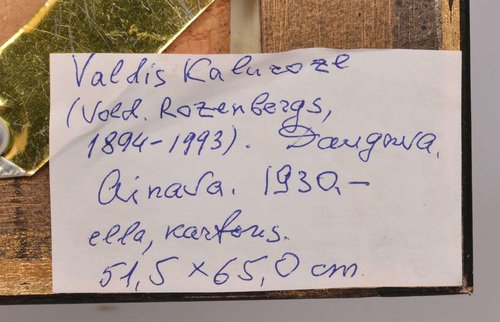 Valdis Kalnroze
(Vold. Rozenbergs,
1894-1993). Daugava.
Ainava. 1930.-
eļļa, kartons.
51,5 × 65,0 cm.